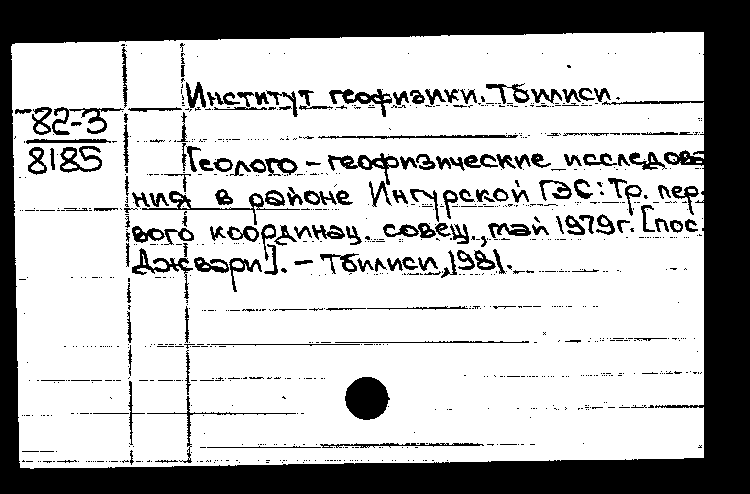 Институт геофизики. Тбилиси.
82-3
8185
Геолого-геофизические исследова
ния в районе Ингурской ГЭС: Тр. пер-
вого координац. совещ., май 1979г. [пос.
Джвари]. - Тбилиси, 1981.